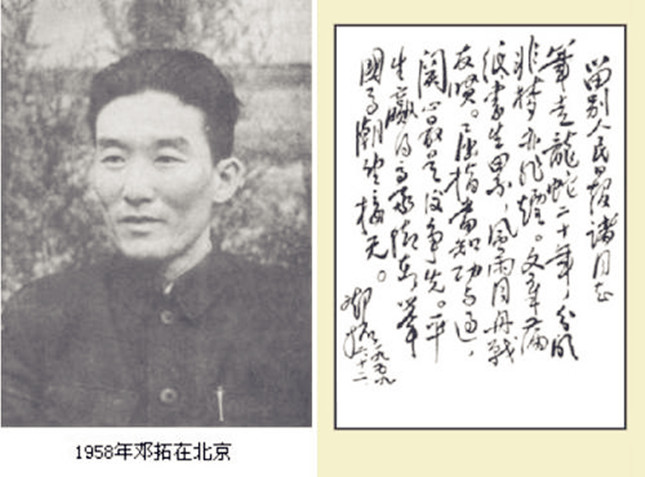 1958年邓拓在北京
留别人民日報諸同志
筆走龍蛇二十年，分明
非梦亦非煙。文章满
纸書生累，風雨同舟戰
友贤。屈指當知功与过，
関心最是後争先。平
生赢得豪情在，举
國高潮望接天。
鄧拓
一九五九
二·十二